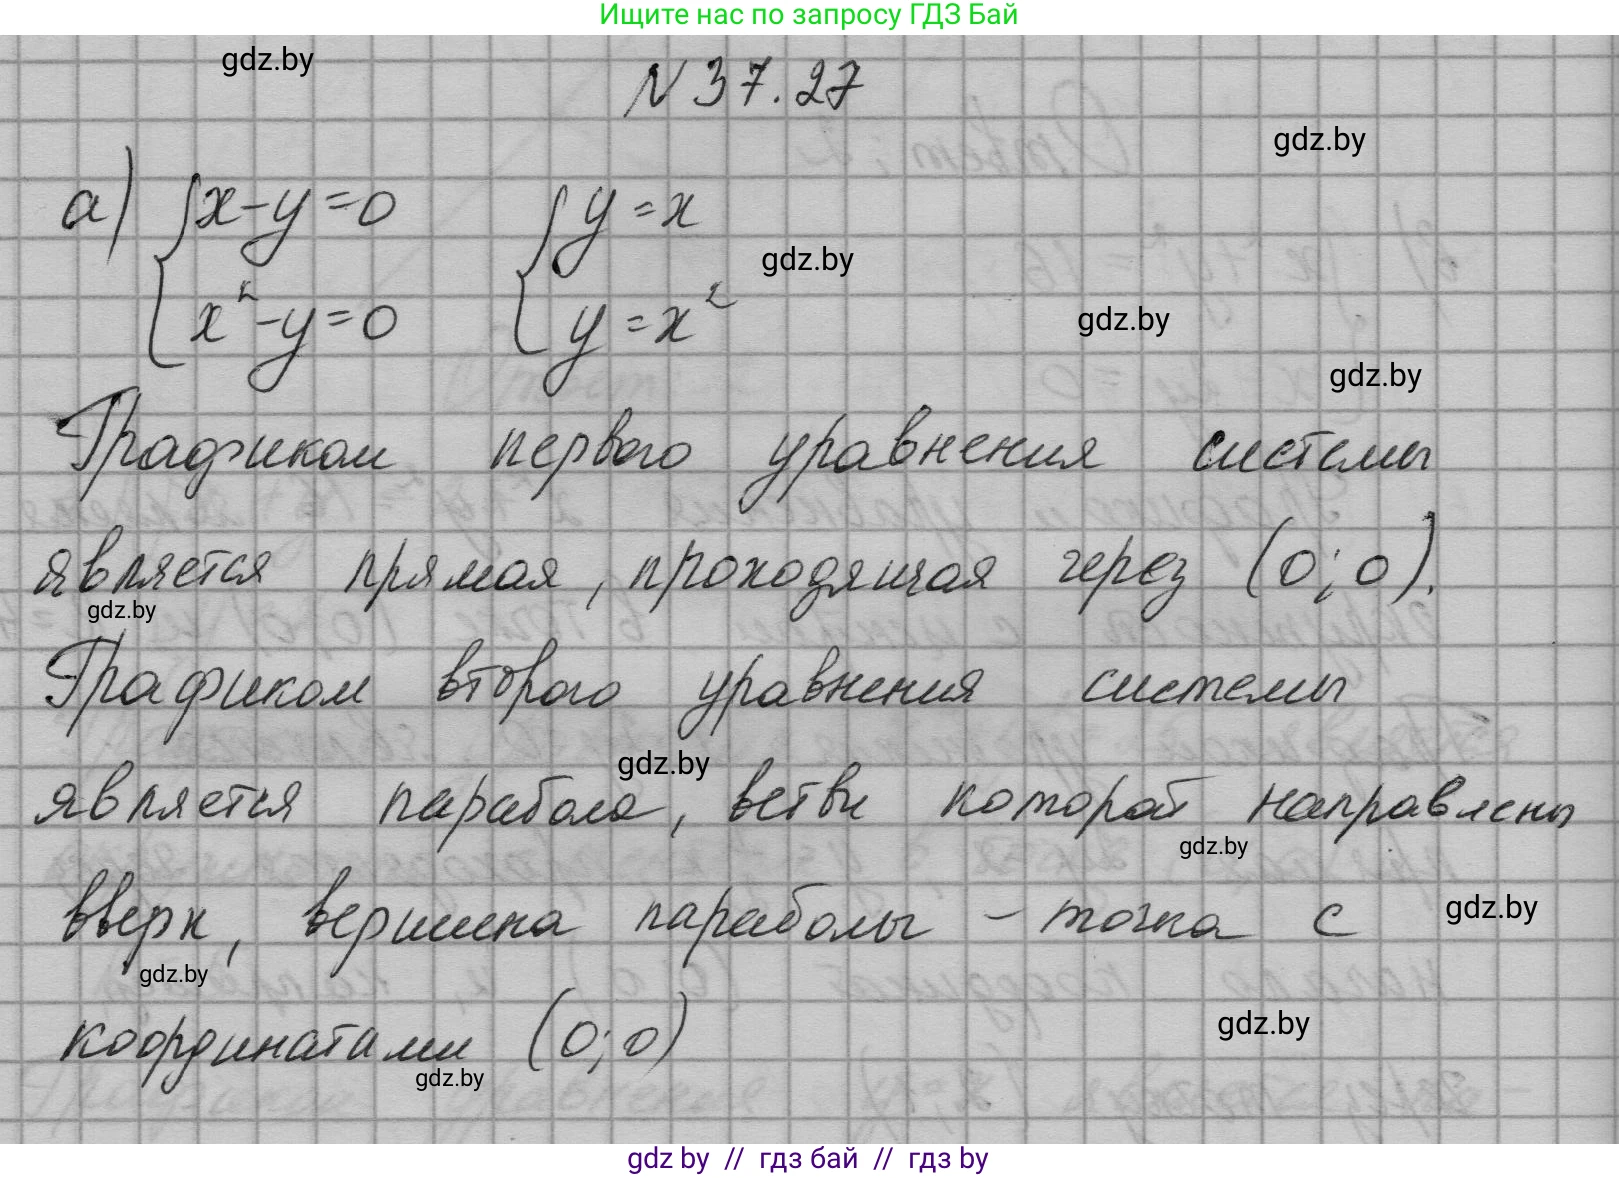 Ищите нас по запросу ГДЗ Бай
gdz.by
N 37.27
gdz.by
а) { x-y=0 { y=x
gdz.by
x²-y=0 y=x²
gdz.by
gdz.by
Графиком первого уравнения системы
является прямая, проходящая через (0;0).
gdz.by
Графиком второго уравнения системы
gdz.by
является парабола, ветви которой направлены
gdz.by
вверх, вершина параболы – точка с
gdz.by
gdz.by
координатами (0;0)
gdz.by
gdz.by
gdz by // гдз бай // гдз by